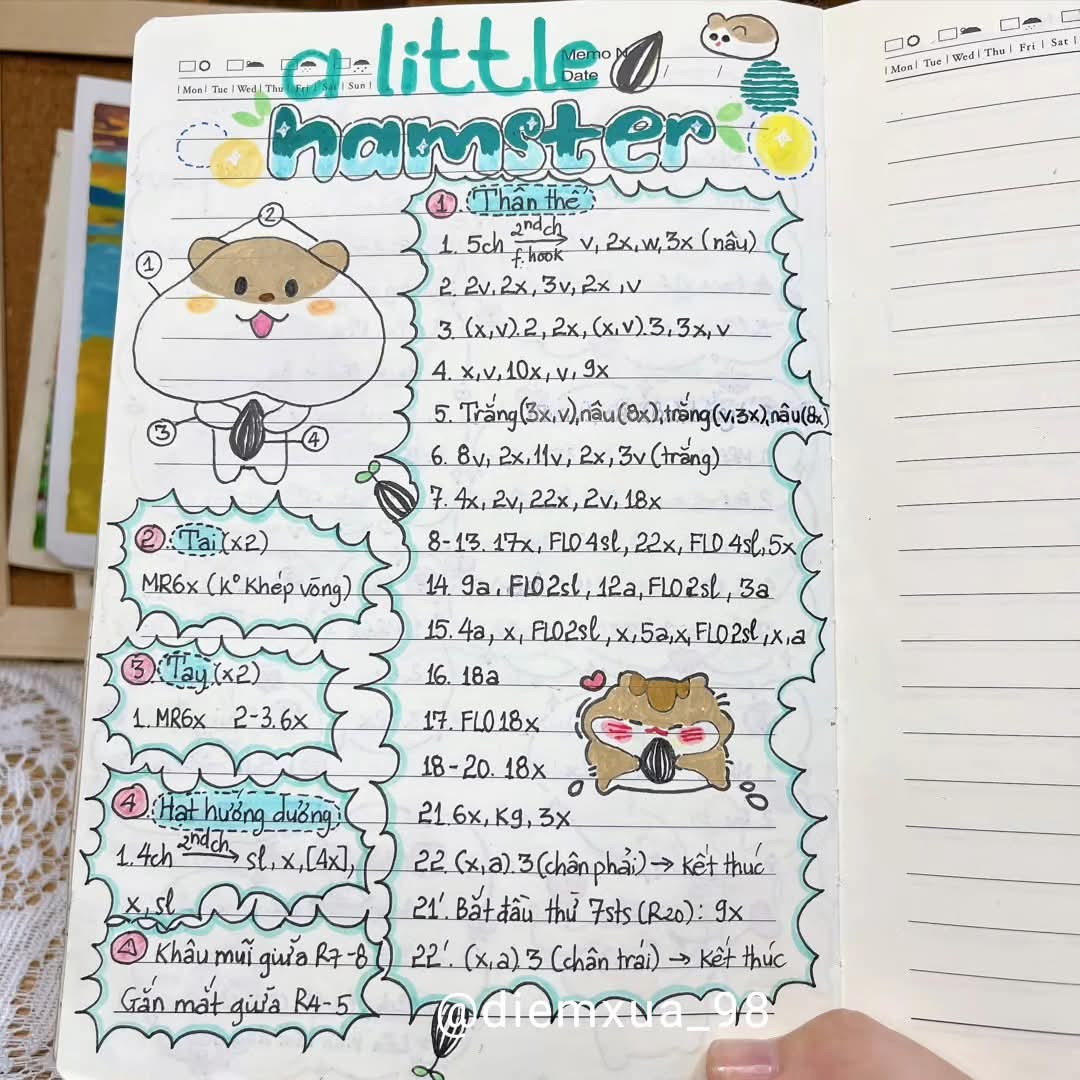 a little
Memo N
Date / /
Mon Tue Wed Thu Fri Sat Sun
hamster
① Thân thể
1. 5ch 2nd ch f. hook → v, 2x, w, 3x (nâu)
2. 2v, 2x, 3v, 2x, v
3. (x, v).2, 2x, (x, v).3, 3x, v
4. x, v, 10x, v, 9x
5. Trắng (3x, v), nâu (8x), trắng (v, 3x), nâu (8x)
6. 8v, 2x, 11v, 2x, 3v (trắng)
7. 4x, 2v, 22x, 2v, 18x
8-13. 17x, FLO 4sl, 22x, FLO 4sl, 5x
14. 9a, FLO 2sl, 12a, FLO 2sl, 3a
15. 4a, x, FLO 2sl, x, 5a, x, FLO 2sl, x, a
16. 18a
17. FLO 18x
18-20. 18x
21. 6x, Kg, 3x
22. (x, a).3 (chân phải) → Kết thúc
21'. Bắt đầu thử 7sts (R20): 9x
22'. (x, a) 3 (chân trái) → Kết thúc
①
②
③
④
② Tai (x2)
MR6x (K° Khép vòng)
③ Tay (x2)
1. MR6x 2-3. 6x
④ Hạt hướng dưỡng
1. 4ch 2nd ch → sl, x, [4x],
x, sl
Khâu mũi giữa R7-8
Gắn mắt giữa R4-5
@diemxua_98
Mon Tue Wed Thu Fri Sat